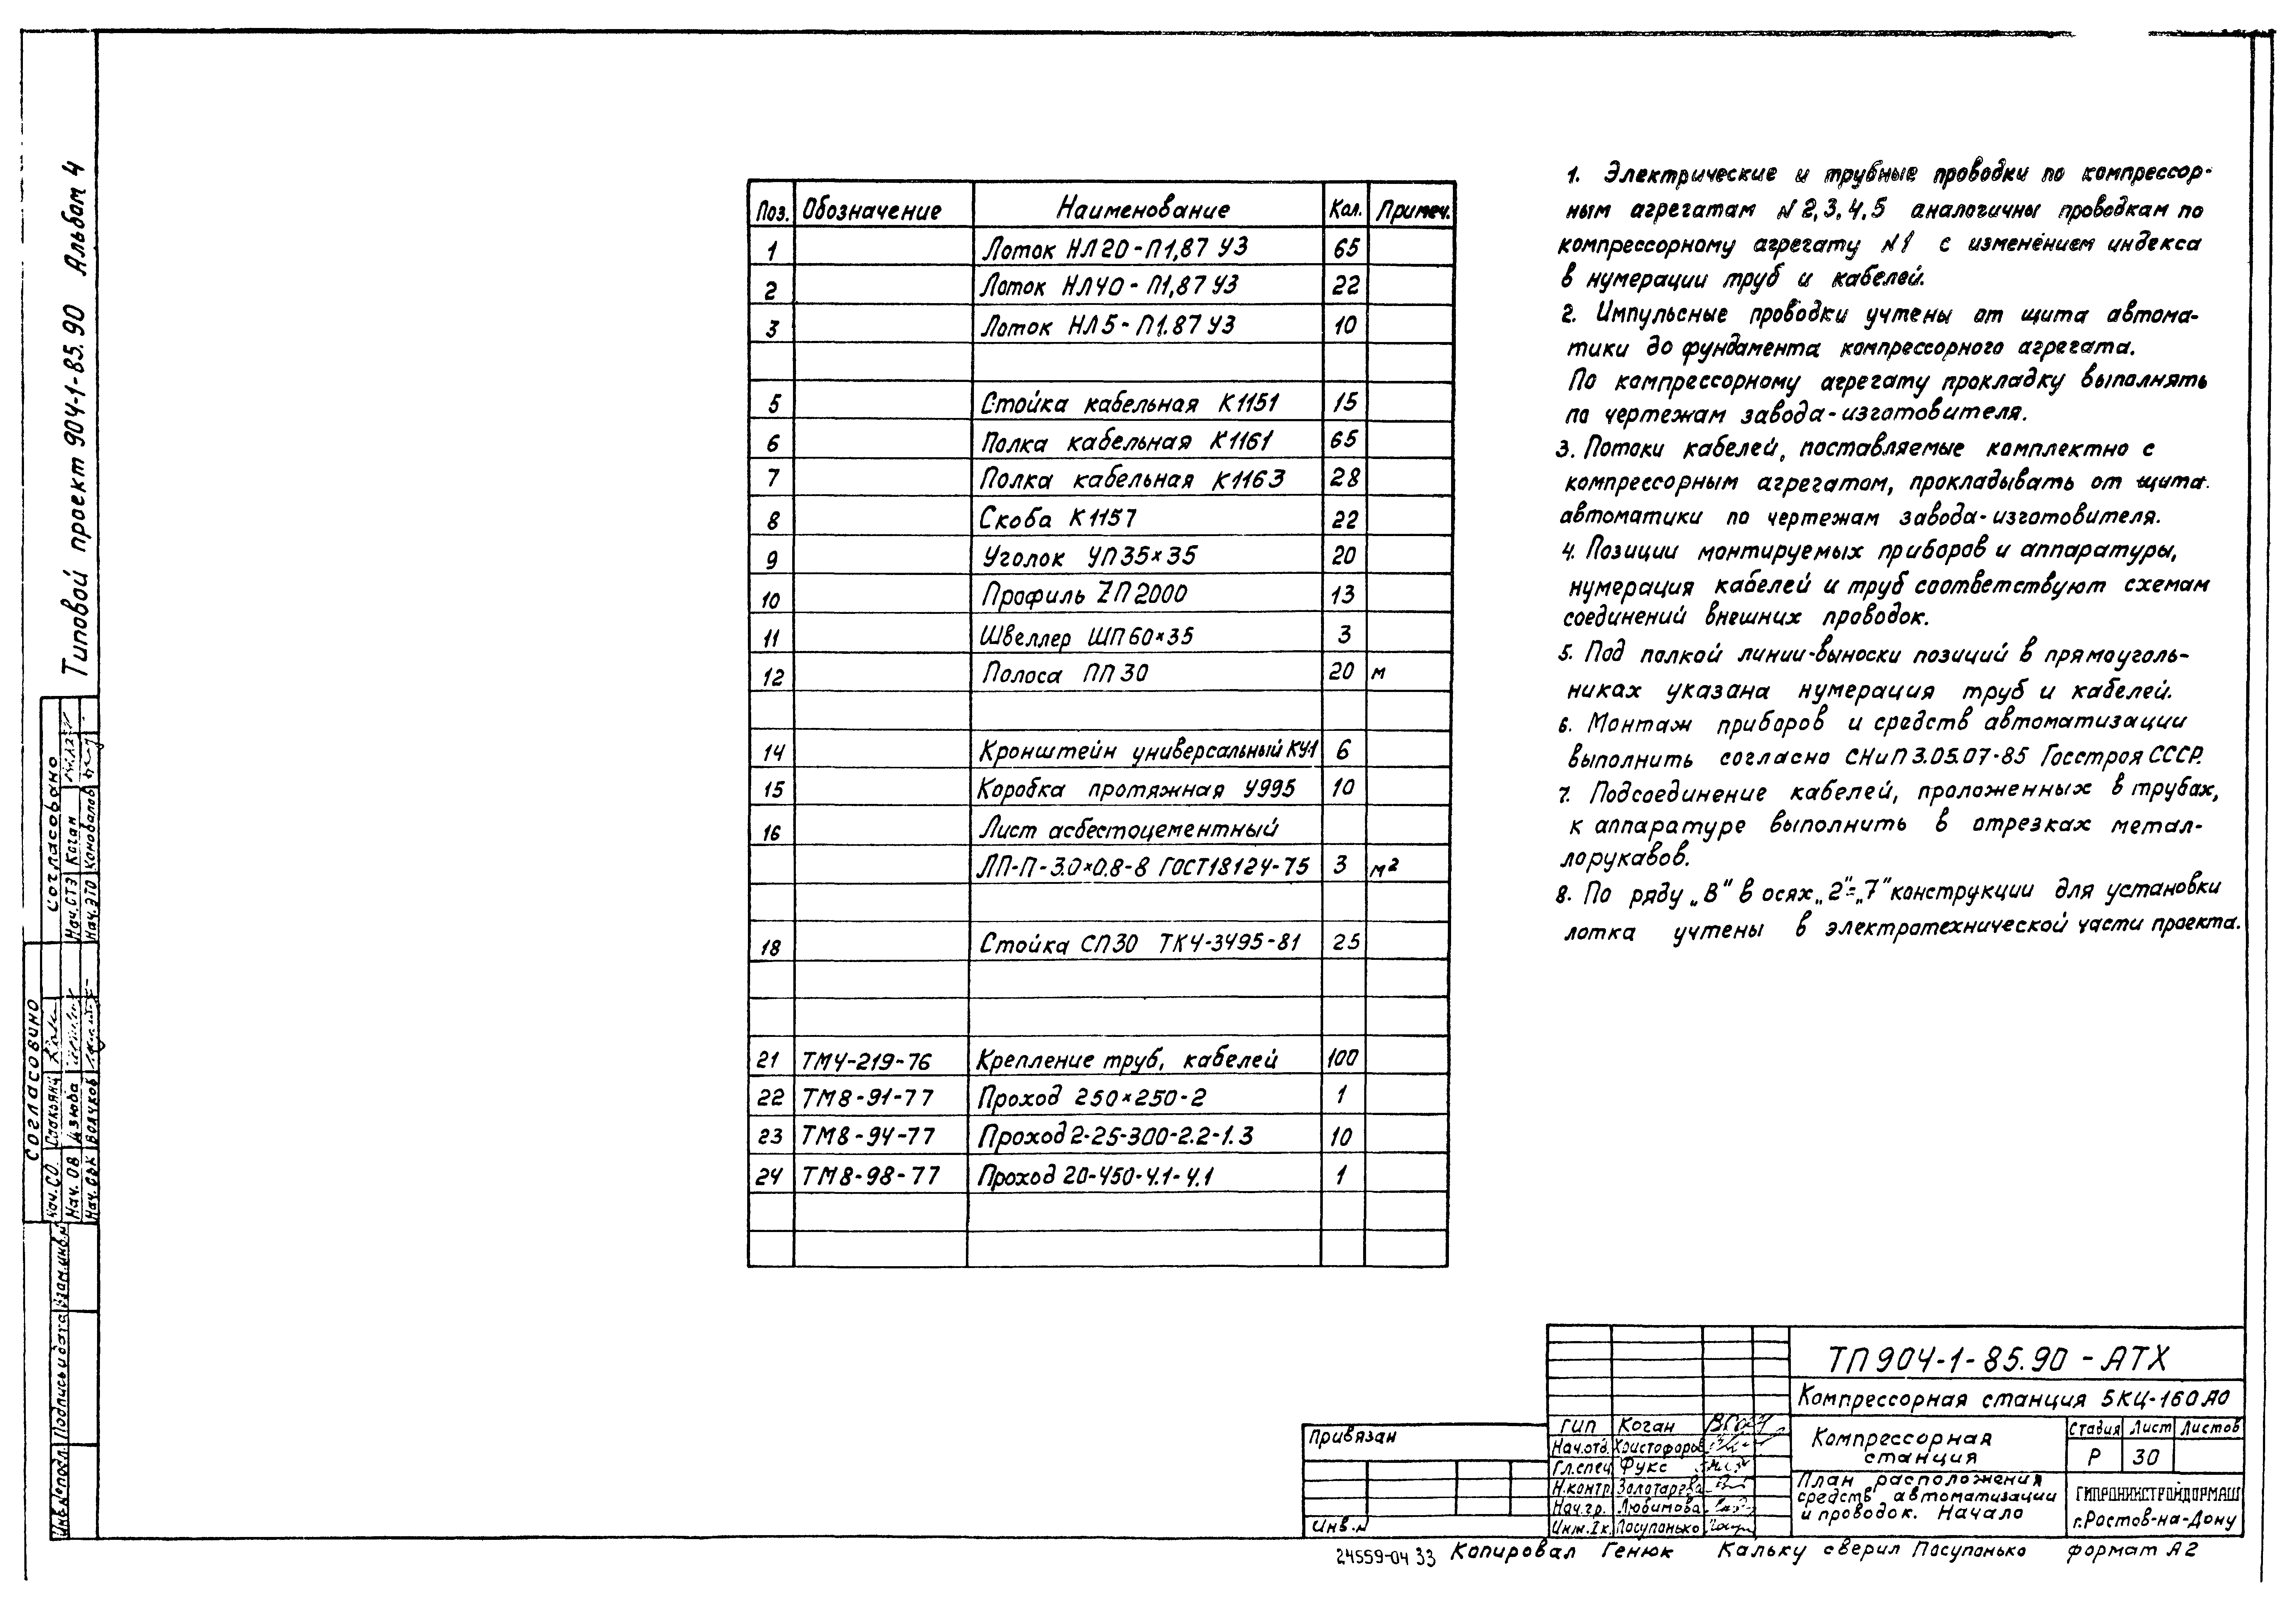 Типовой проект 904-1-85.90 Альбом 4
Поз. Обозначение Наименование Кол. Примеч.
1 Лоток НЛ20-П1,87 У3 65
2 Лоток НЛ40-П1,87 У3 22
3 Лоток НЛ5-П1.87 У3 10
5 Стойка кабельная К1151 15
6 Полка кабельная К1161 65
7 Полка кабельная К1163 28
8 Скоба К1157 22
9 Уголок УП35×35 20
10 Профиль ZП2000 13
11 Швеллер ШП60×35 3
12 Полоса ПП30 20 м
14 Кронштейн универсальный КУ1 6
15 Коробка протяжная У995 10
16 Лист асбестоцементный
ЛП-П-3.0×0.8-8 ГОСТ18124-75 3 м²
18 Стойка СП30 ТК4-3495-81 25
21 ТМ4-219-76 Крепление труб, кабелей 100
22 ТМ8-91-77 Проход 250×250-2 1
23 ТМ8-94-77 Проход 2-25-300-2.2-1.3 10
24 ТМ8-98-77 Проход 20-450-4.1-4.1 1
1. Электрические и трубные проводки по компрессор-
ным агрегатам №2,3,4,5 аналогичны проводкам по
компрессорному агрегату №1 с изменением индекса
в нумерации труб и кабелей.
2. Импульсные проводки учтены от щита автома-
тики до фундамента компрессорного агрегата.
По компрессорному агрегату прокладку выполнять
по чертежам завода-изготовителя.
3. Потоки кабелей, поставляемые комплектно с
компрессорным агрегатом, прокладывать от щита
автоматики по чертежам завода-изготовителя.
4. Позиции монтируемых приборов и аппаратуры,
нумерация кабелей и труб соответствуют схемам
соединений внешних проводок.
5. Под полкой линии-выноски позиций в прямоуголь-
никах указана нумерация труб и кабелей.
6. Монтаж приборов и средств автоматизации
выполнить согласно СНиП 3.05.07-85 Госстроя СССР.
7. Подсоединение кабелей, проложенных в трубах,
к аппаратуре выполнить в отрезках метал-
лорукавов.
8. По ряду „В" в осях „2"÷„7" конструкции для установки
лотка учтены в электротехнической части проекта.
согласовано
Нач.СТЭ Коган
Нач.ЭТО Коновалов
согласовано
Нач.СО. Саакянц
Нач. ОВ Дзюба
Нач. ОВК Волчков
Взам.инв.№
Подпись и дата
Инв.№подл.
Привязан
Инв.№
ТП904-1-85.90-АТХ
Компрессорная станция 5КЦ-160А0
ГИП Коган
Нач.отд. Христофоров
Гл.спец Фукс
Н.контр. Золотарева
Нач.гр. Любимова
Инж.Iк. Посупонько
Компрессорная
станция
Стадия Лист Листов
Р 30
План расположения
средств автоматизации
и проводок. Начало
ГИПРОНИИСТРОЙДОРМАШ
г.Ростов-на-Дону
24559-04 33 Копировал Генюк Кальку сверил Посупонько формат А2